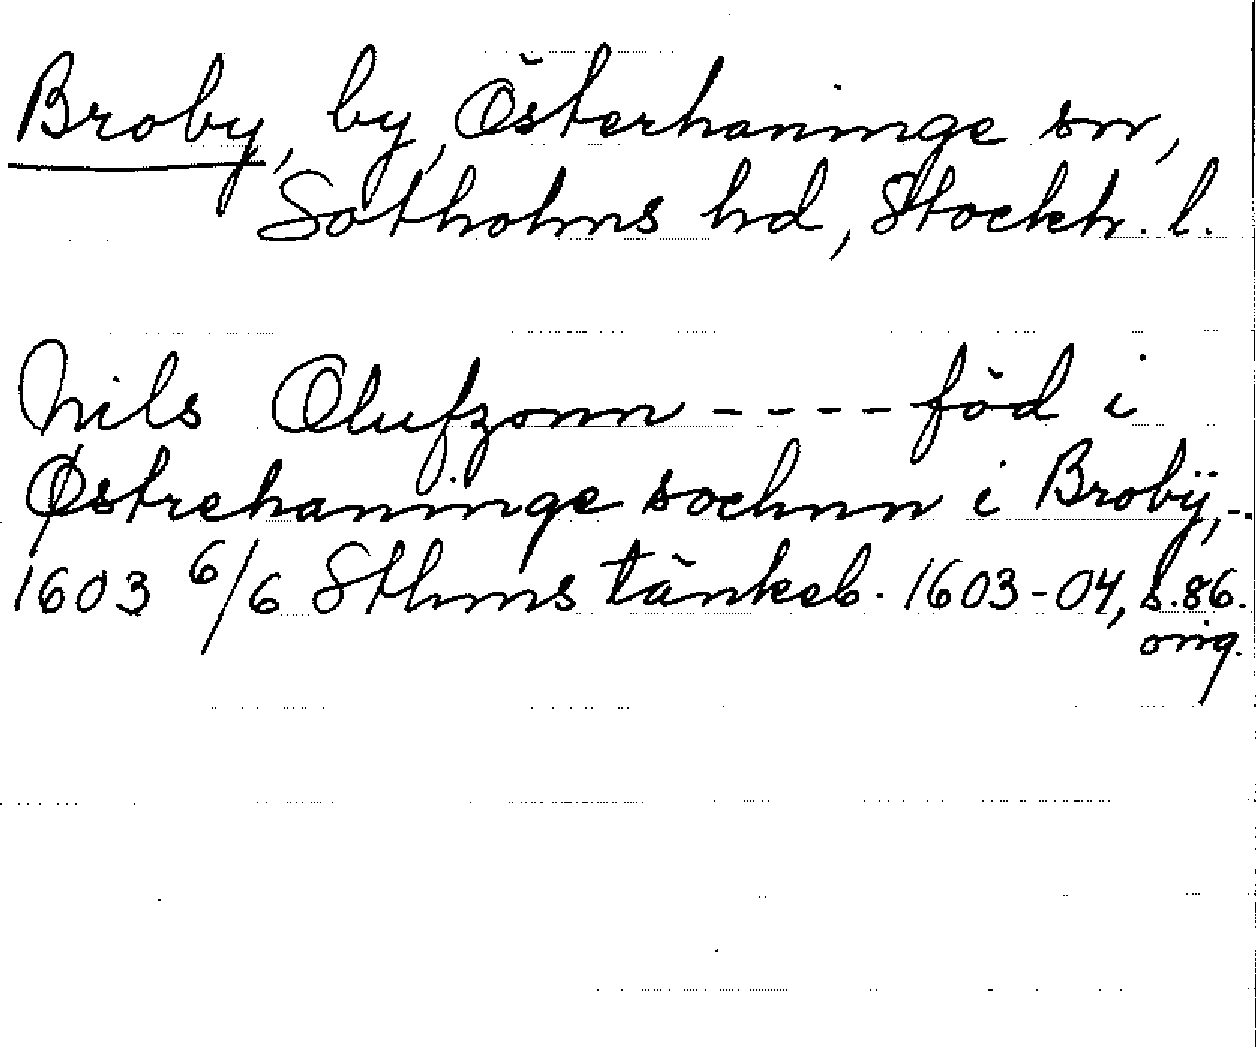 Broby, by, Österhaninge sn,
Sotholms hd, Stockh. l.
Nils Olufzonn - - - - föd i
Østrehaninge sochnn i Brobÿ, -.
1603 6/6 Sthms tänkeb. 1603-04, s. 86.
orig.